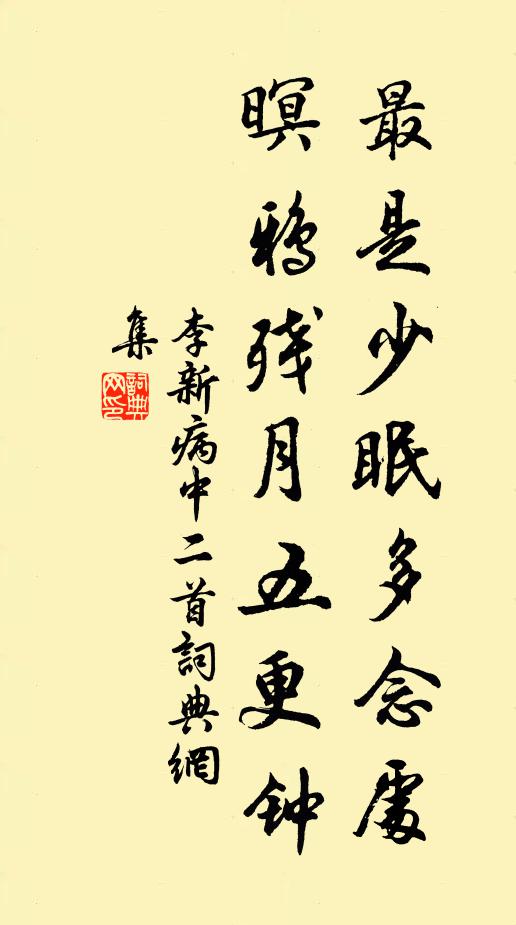 最是少眠多念處
暝鴉残月五更钟
李新病中二首詞典網
集
詞典网印